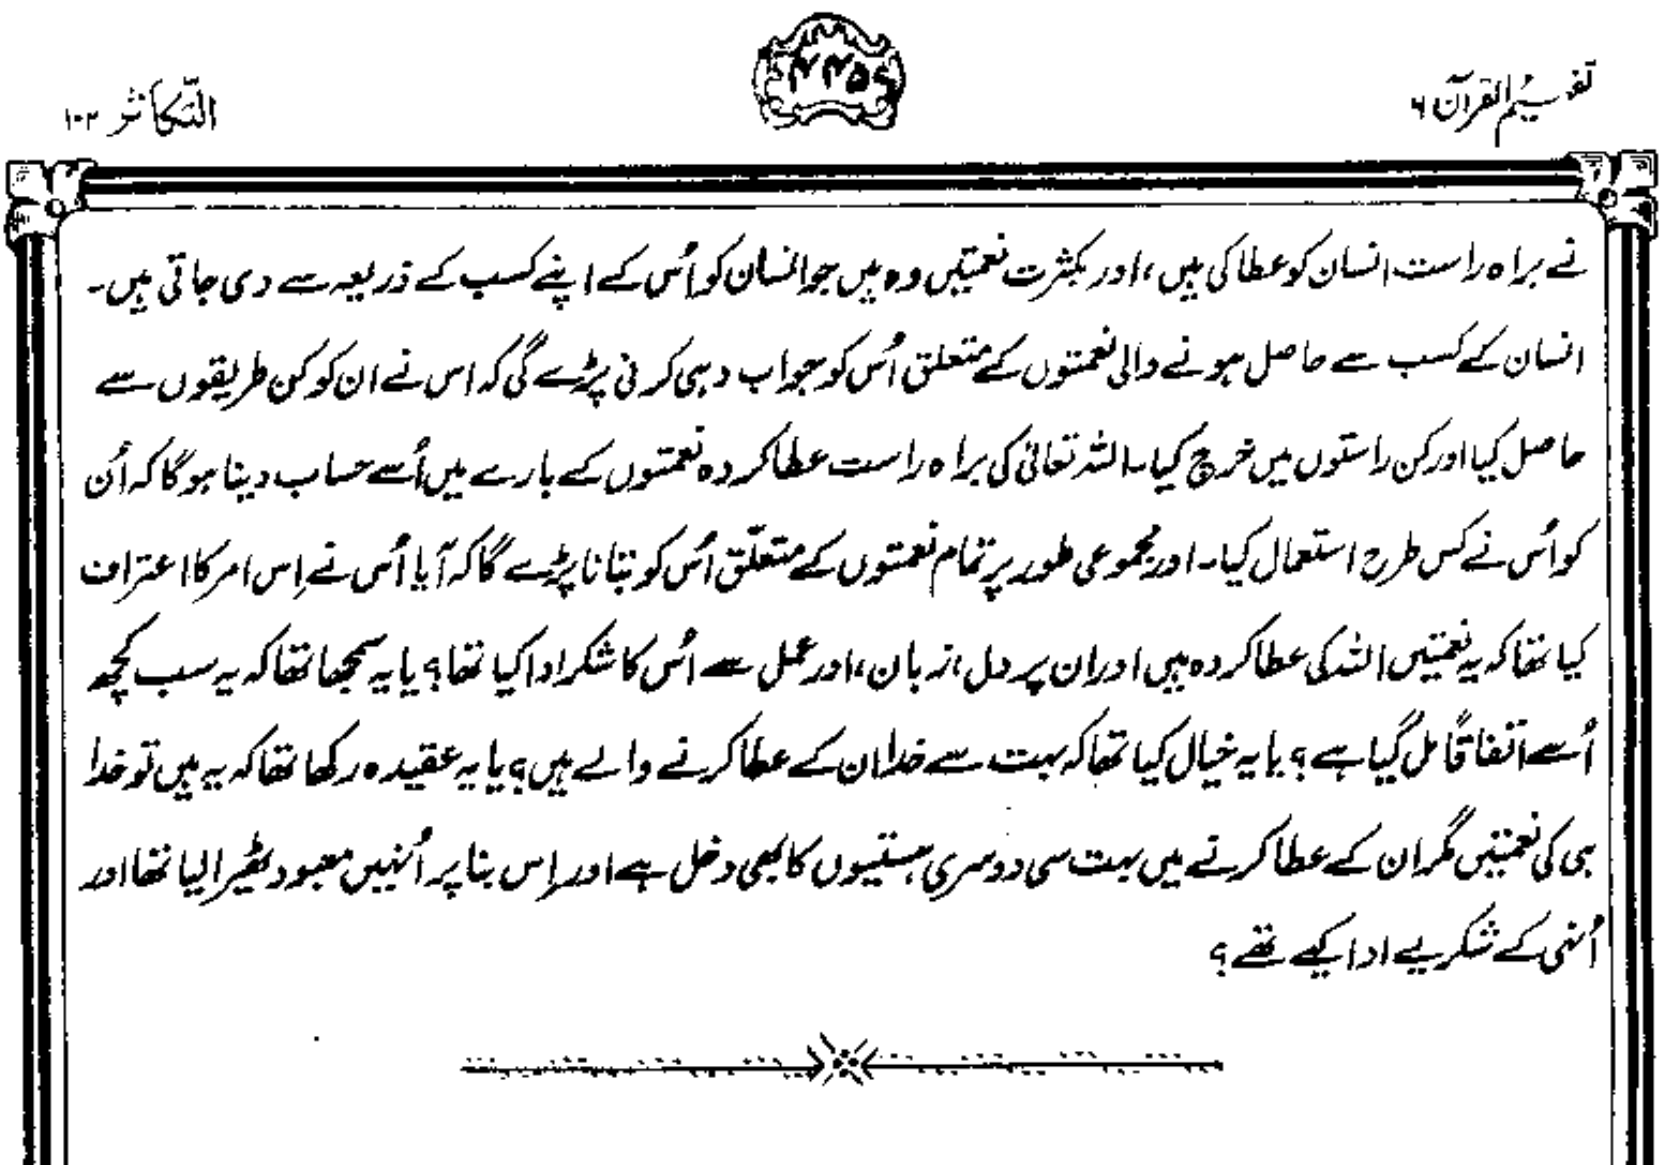 تفہیم القرآن ۶
التکاثر ۱۰۲
نے براہ راست انسان کو عطا کی ہیں، اور بکثرت نعمتیں وہ ہیں جو انسان کو اُس کے اپنے کسب کے ذریعہ سے دی جاتی ہیں۔
انسان کے کسب سے حاصل ہونے والی نعمتوں کے متعلق اُس کو جواب دہی کرنی پڑے گی کہ اس نے ان کو کن طریقوں سے
حاصل کیا اور کن راستوں میں خرچ کیا۔ اللہ تعالیٰ کی براہ راست عطا کردہ نعمتوں کے بارے میں اُسے حساب دینا ہوگا کہ اُن
کو اُس نے کس طرح استعمال کیا۔ اور مجموعی طور پر تمام نعمتوں کے متعلّق اُس کو بتانا پڑے گا کہ آیا اُس نے اِس امر کا اعتراف
کیا تھا کہ یہ نعمتیں اللہ کی عطا کردہ ہیں اور ان پر دل، زبان، اور عمل سے اُس کا شکر ادا کیا تھا؟ یا یہ سمجھا تھا کہ یہ سب کچھ
اُسے اتفاقاً مل گیا ہے؟ یا یہ خیال کیا تھا کہ بہت سے خدا ان کے عطا کرنے والے ہیں؟ یا یہ عقیدہ رکھا تھا کہ یہ ہیں تو خدا
ہی کی نعمتیں مگر ان کے عطا کرنے میں بہت سی دوسری ہستیوں کا بھی دخل ہے اور اِس بنا پر اُنہیں معبود ٹھیرا لیا تھا اور
اُنہی کے شکریے ادا کیے تھے؟